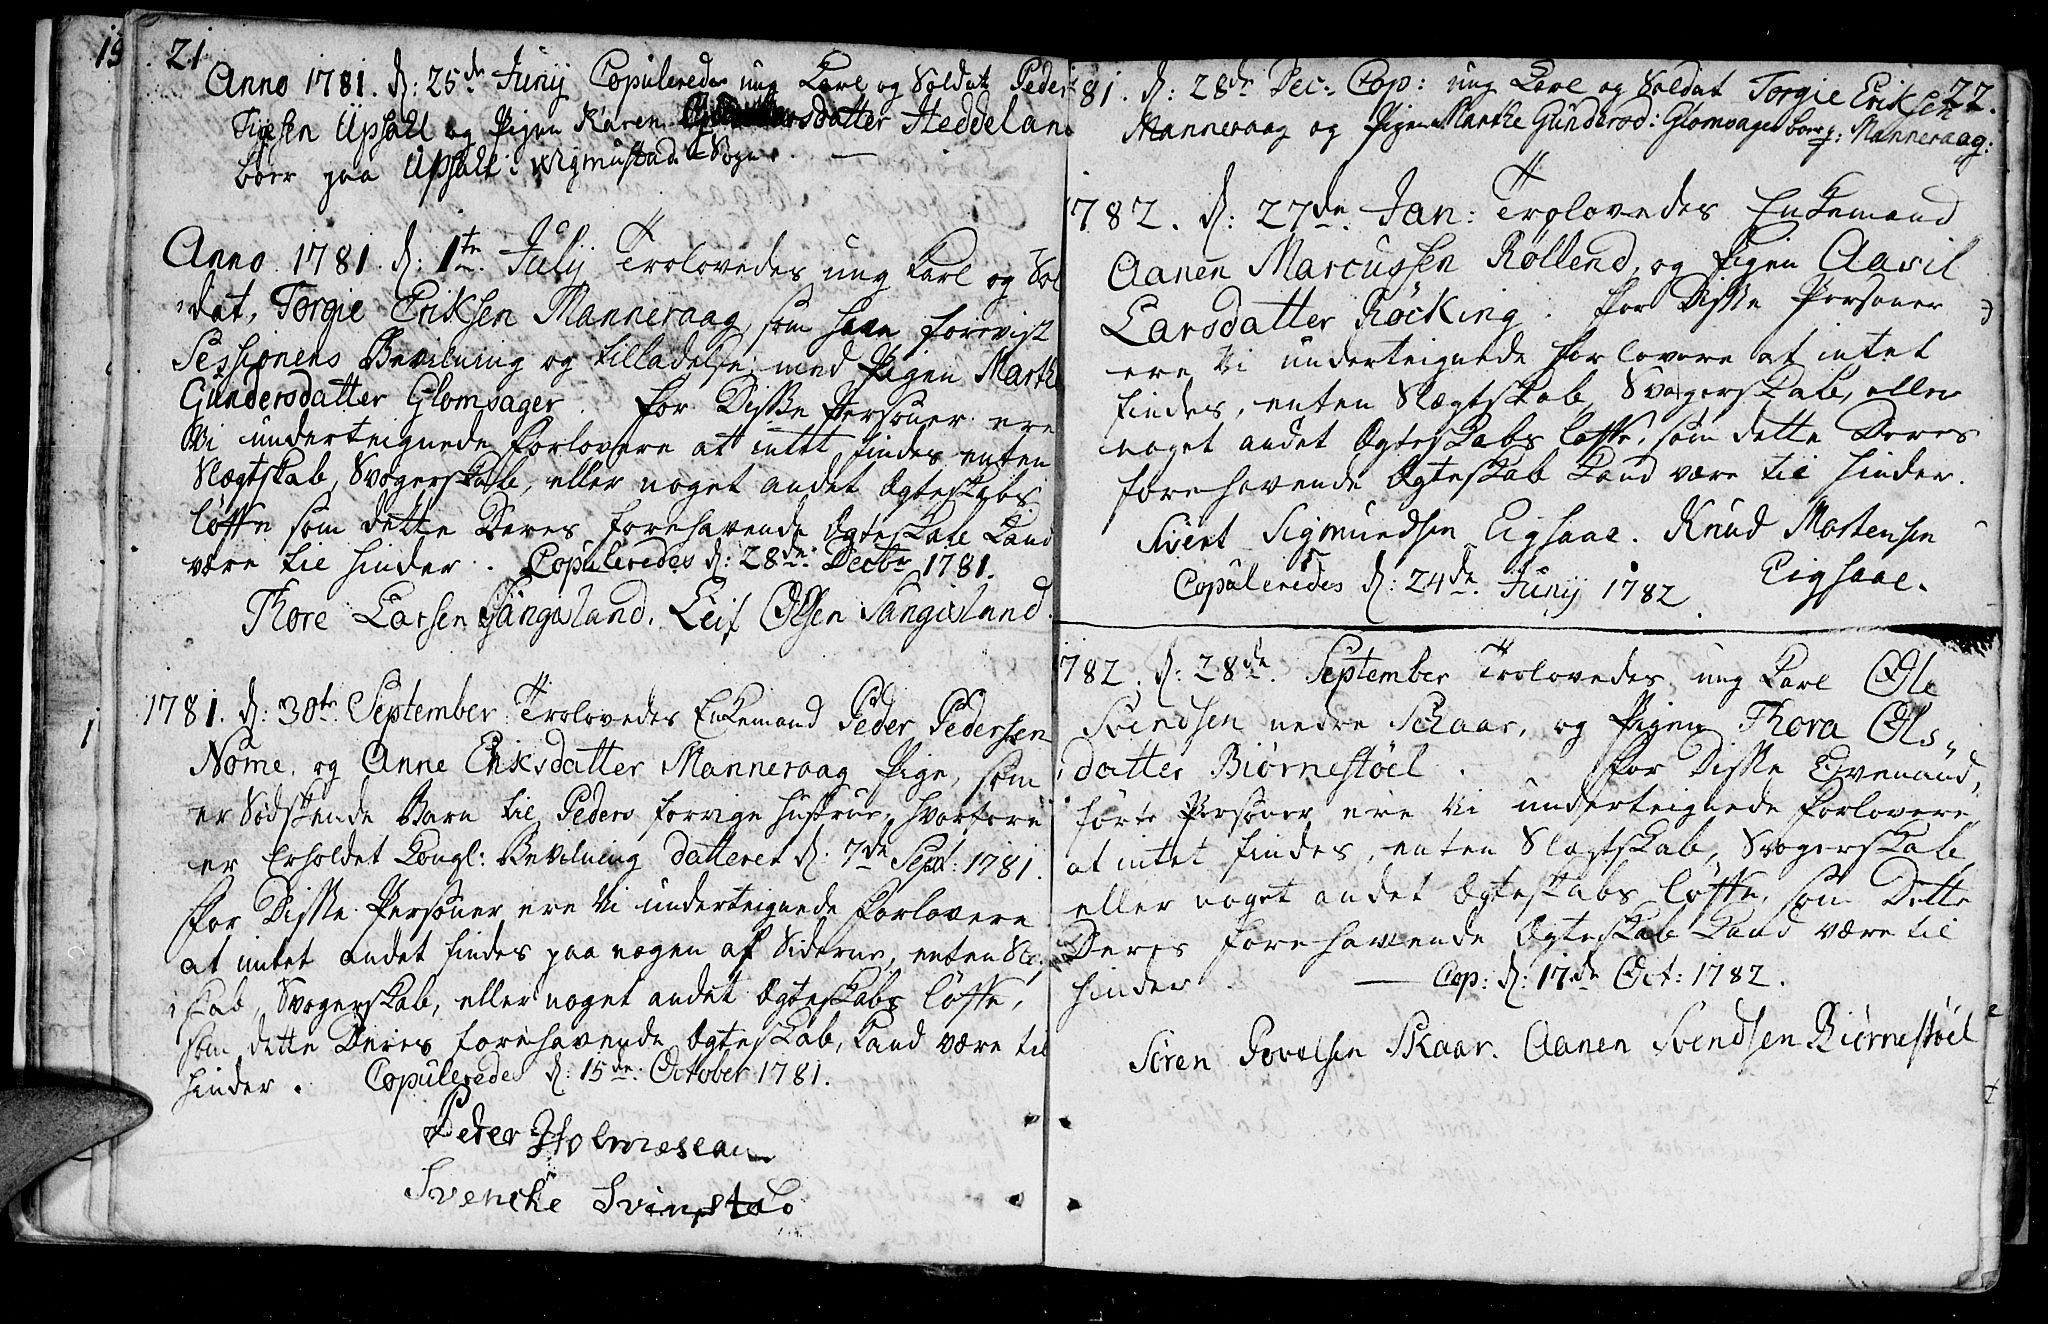 21
Anno 1781. d: 25de Junij Copuleredes ung Karl og Soldat Peder
Tigesen Upsall og Pigen Karen datter Heddeland
boer paa Upsall i Wigmustad Sogn. —
Anno 1781. d: 1te July Trolovedes ung Karl og Sol
dat, Torgie Eriksen Manneraag, som have forevist
Sessionens Bevilning og tilladelse, med Pigen Marthe
Gundersdatter Glomsager. For Disse Personer ere
Vi underteignede Forlovere at intet findes enten
Slægtskab, Svogerskab, eller noget andet Ægteskabs
løffte som dette Deres forehavende Ægteskab kand
være til hinder. Copuleredes d: 28de Decbr 1781.
Thore Larsen Sangesland. Leif Olsen Sangesland.
1781. d: 30te September Trolovedes Enkemand Peder Pedersen
Nome, og Anne Eriksdatter Manneraag Pige, som
er Sødskende Barn til Peders forrige hustrue, hvorfore
er Erholdet Kongl: Bevilning datteret d: 7de Sept: 1781.
For Disse Personer ere Vi underteignede Forlovere
at intet andet findes paa nogen af Siderne, enten Slægt
skab, Svogerskab, eller noget andet Ægteskabs løffte,
som dette Deres forehavende Ægteskab, kand være til
hinder. Copuleredes d: 15de October 1781.
Peder Holmesland
Svenche Svinstøl
22.
81. d: 28de Dec: Cop: ung Karl og Soldat Torgie Eriksen
Manneraag og Pigen Marthe Gundersd: Glomsager boer p: Manneraag:
1782. d: 27de Jan: Trolovedes Enkemand
Aanen Marcussen Røllend, og Pigen Aavil
Larsdatter Røcking. For Disse Personer
ere Vi underteignede Forlovere at intet
findes, enten Slægtskab, Svogerskab, eller
noget andet Ægteskabs løffte, som dette Deres
forehavende Ægteskab kand være til hinder.
Sivert Sigmundsen Eigsaae. Knud Mortensen
Eigsaae.
Copuleredes d: 24de Junij 1782.
1782. d: 28de September Trolovedes ung Karl Ole
Svendsen nedre Schaar, og Pigen Thora Ols„
datter Biørnestøel. For Disse Ovenand„
førte Personer ere Vi underteignede Forlovere,
at intet findes, enten Slægtskab, Svogerskab
eller noget andet Ægteskabs løffte, som Dette
Deres forehavende Ægteskab kand være til
hinder. — Cop: d: 17de Oct: 1782.
Søren Povelsen Skaar. Aanen Svendsen Biørnestøel